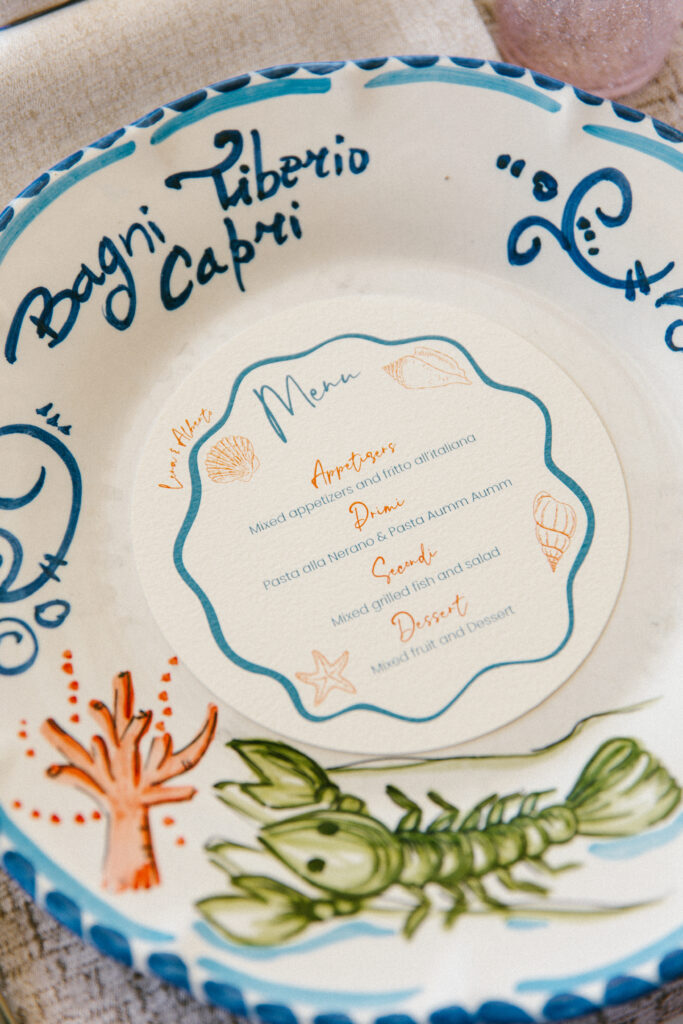 Bagni Tiberio
Capri
Menu
Appetizers
Mixed appetizers and fritto all'italiana
Primi
Pasta alla Nerano & Pasta Aumm Aumm
Secondi
Mixed grilled fish and salad
Dessert
Mixed fruit and Dessert